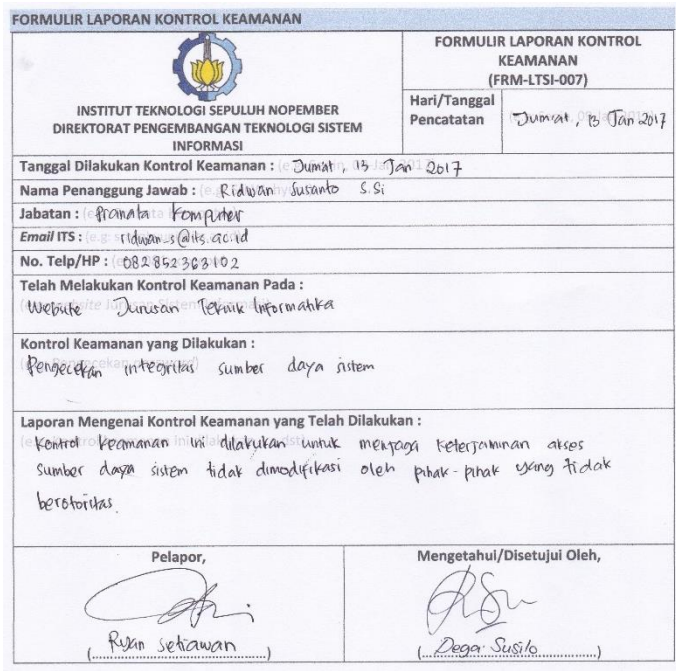 FORMULIR LAPORAN KONTROL KEAMANAN
INSTITUT TEKNOLOGI SEPULUH NOPEMBER
DIREKTORAT PENGEMBANGAN TEKNOLOGI SISTEM
INFORMASI
FORMULIR LAPORAN KONTROL
KEAMANAN
(FRM-LTSI-007)
Hari/Tanggal
Pencatatan
Jumat, 13 Jan 2017
Tanggal Dilakukan Kontrol Keamanan : Jumat, 13 Jan 2017
Nama Penanggung Jawab : Ridwan Susanto S.Si
Jabatan : Pranata Komputer
Email ITS : ridwan_s@its.ac.id
No. Telp/HP : 082852363102
Telah Melakukan Kontrol Keamanan Pada :
Website Jurusan Teknik Informatika
Kontrol Keamanan yang Dilakukan :
Pengecekan integritas sumber daya sistem
Laporan Mengenai Kontrol Keamanan yang Telah Dilakukan :
Kontrol keamanan ini dilakukan untuk menjaga keterjaminan akses
sumber daya sistem tidak dimodifikasi oleh pihak-pihak yang tidak
berotoritas.
Pelapor,
(Ryan Setiawan)
Mengetahui/Disetujui Oleh,
(Dega Susilo)